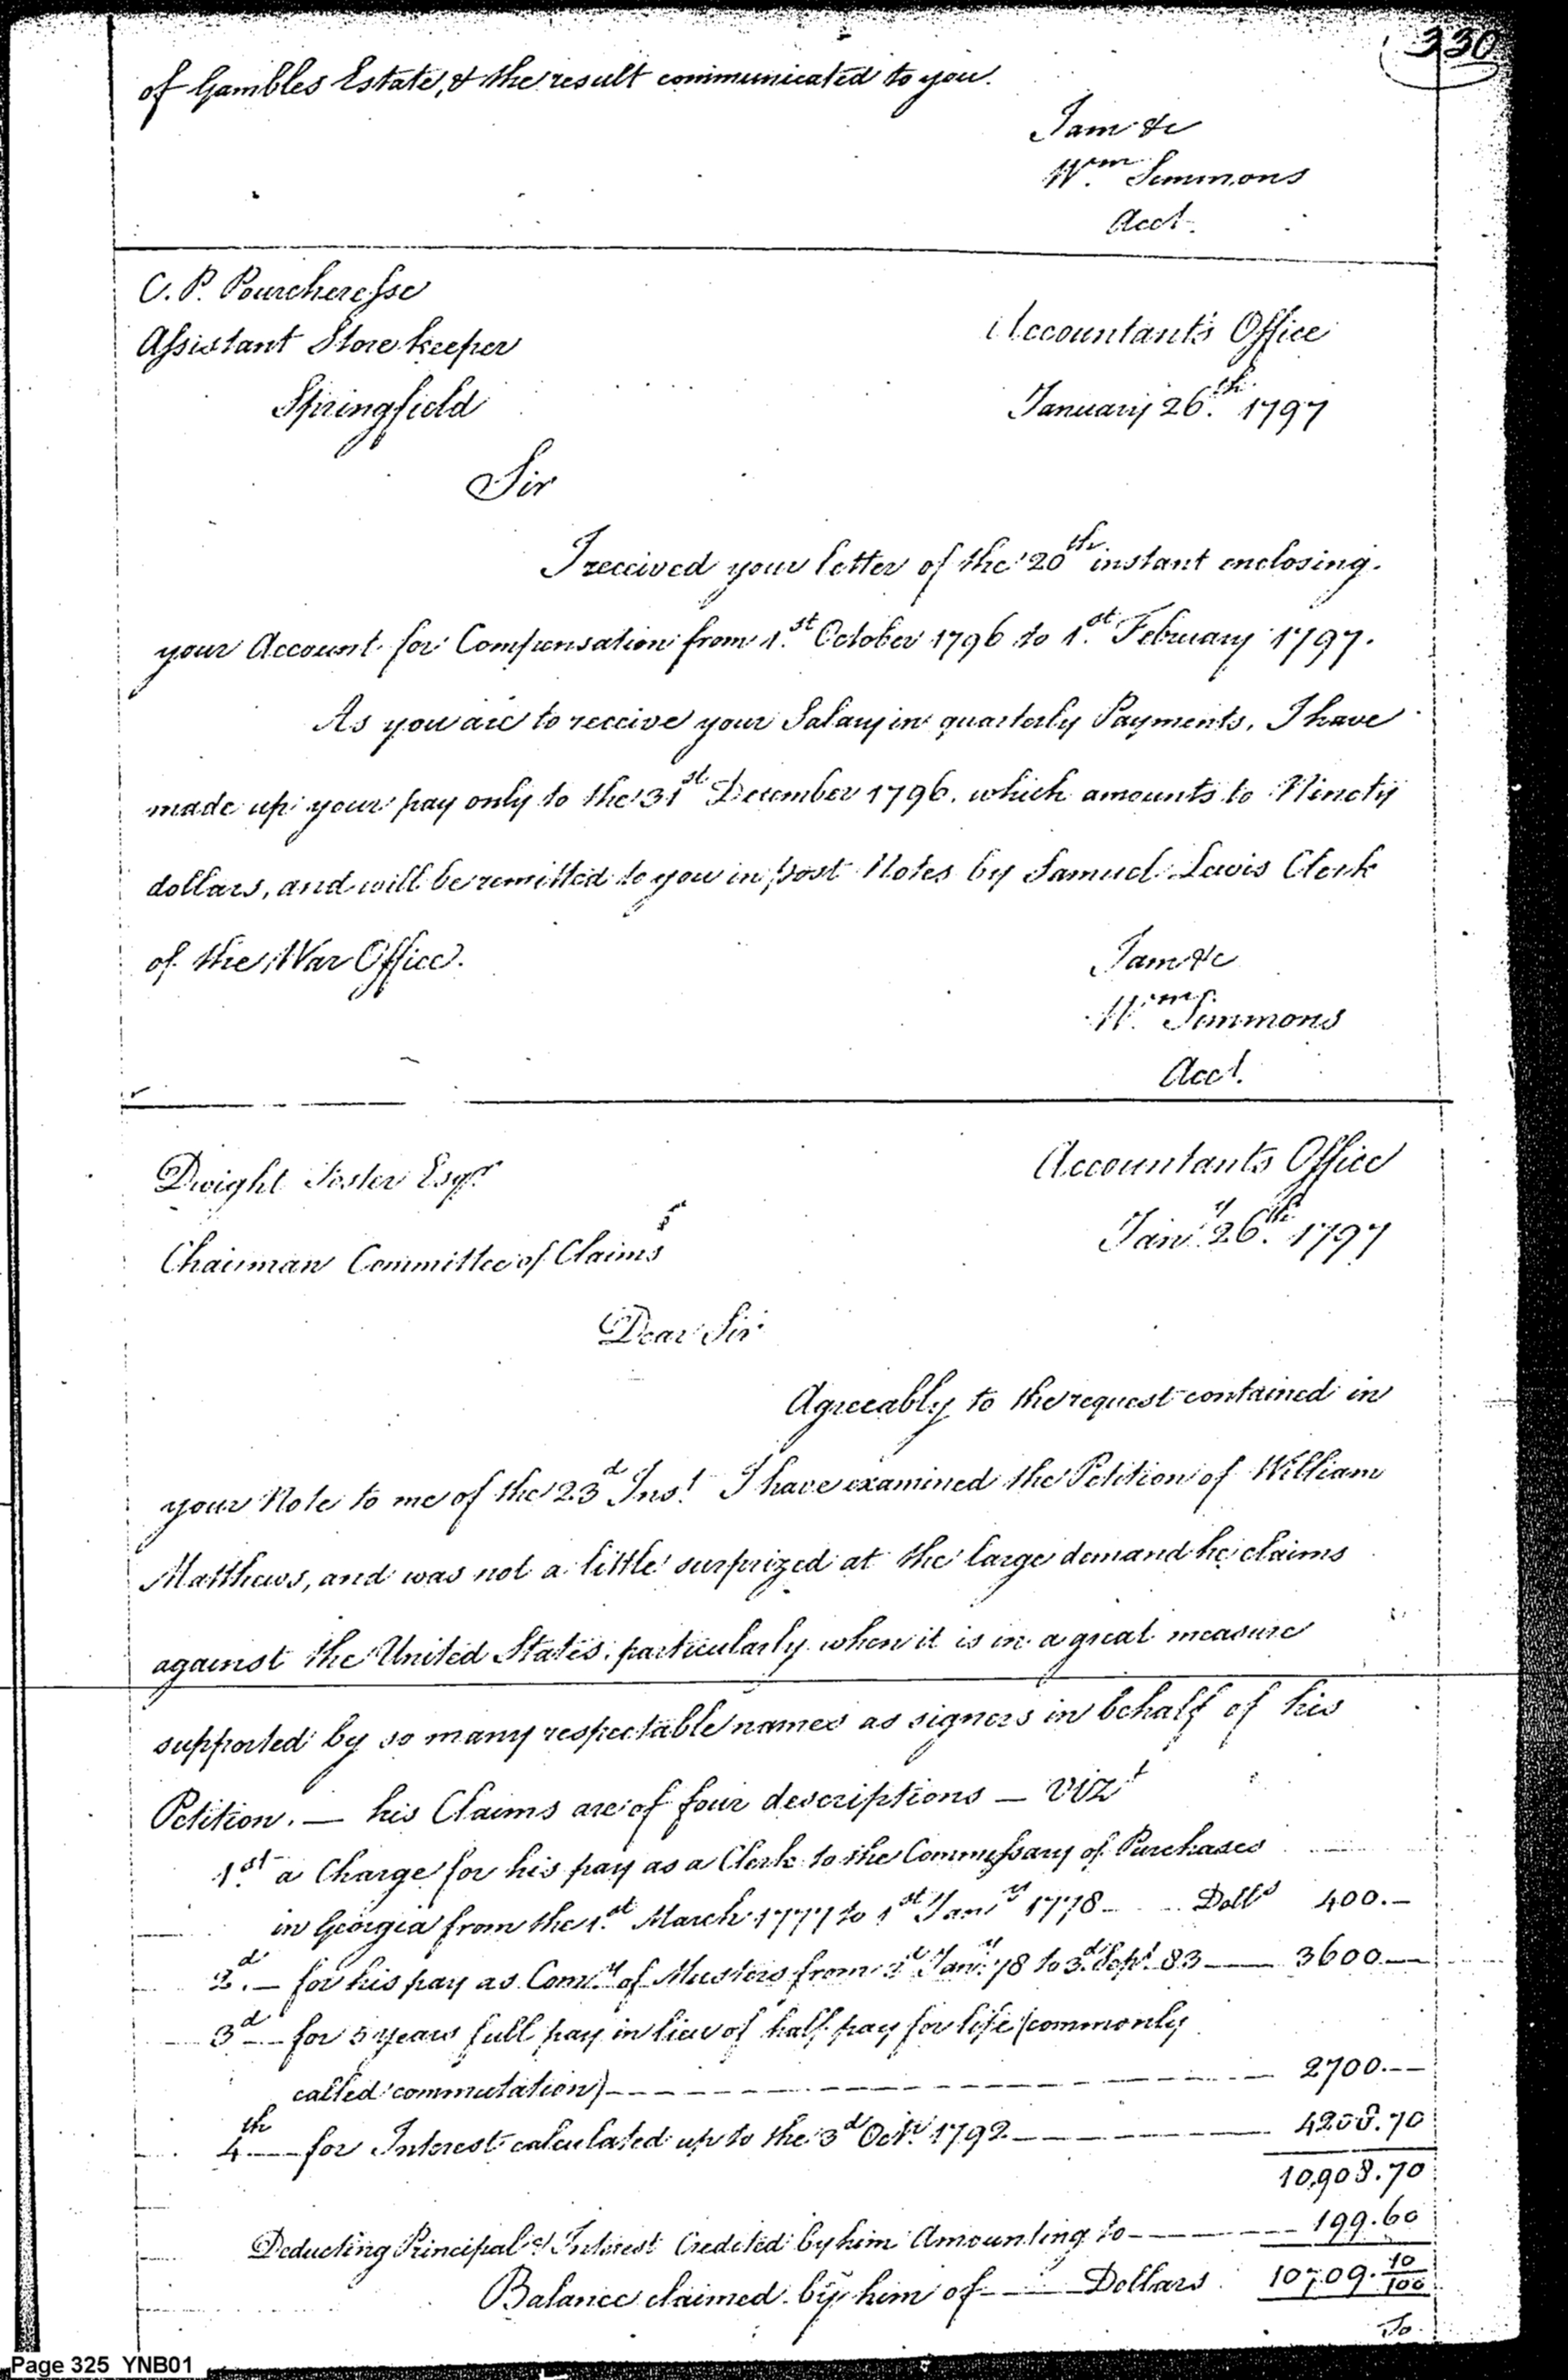 330
of Gambles Estate, & the result communicated to you.
I am &c
Wm. Simmons
Acct.
C. P. Pourcheresse
Assistant Storekeeper
Springfield
Accountant's Office
January 26.th 1797
Sir
I received your letter of the 20th instant enclosing
your Account for Compensation from 1.st October 1796 to 1.st February 1797.
As you are to receive your Salary in quarterly Payments, I have
made up your pay only to the 31st December 1796. which amounts to Ninety
dollars, and will be remitted to you in post Notes by Samuel Lewis Clerk
of the War Office.
I am &c
Wm. Simmons
Acct.
Dwight Foster Esqr.
Chairman Committee of Claims
Accountants Office
Jany. 26.th 1797
Dear Sir
Agreeably to the request contained in
your Note to me of the 23d Inst. I have examined the Petition of William
Matthews, and was not a little surprized at the large demand he claims
against the United States, particularly when it is in a great measure
supported by so many respectable names as signers in behalf of his
Petition. — his Claims are of four descriptions — Vizt
1.st a Charge for his pay as a Clerk to the Commissary of Purchases
in Georgia from the 1.st March 1777 to 1st Jany 1778 — Dolls 400.—
2d. — for his pay as Comy. of Musters from Jany. 78 to 3.d Sept. 83 — 3600.—
3d — for 5 years full pay in lieu of half pay for life (commonly
called commutation) — 2700.—
4th — for Interest calculated up to the 3d Octr. 1792 — 4208.70
10,908.70
Deducting Principal & Interest Credited by him Amounting to — 199.60
Balance claimed by him of — Dollars 10709.10/100
To
Page 325 YNB01